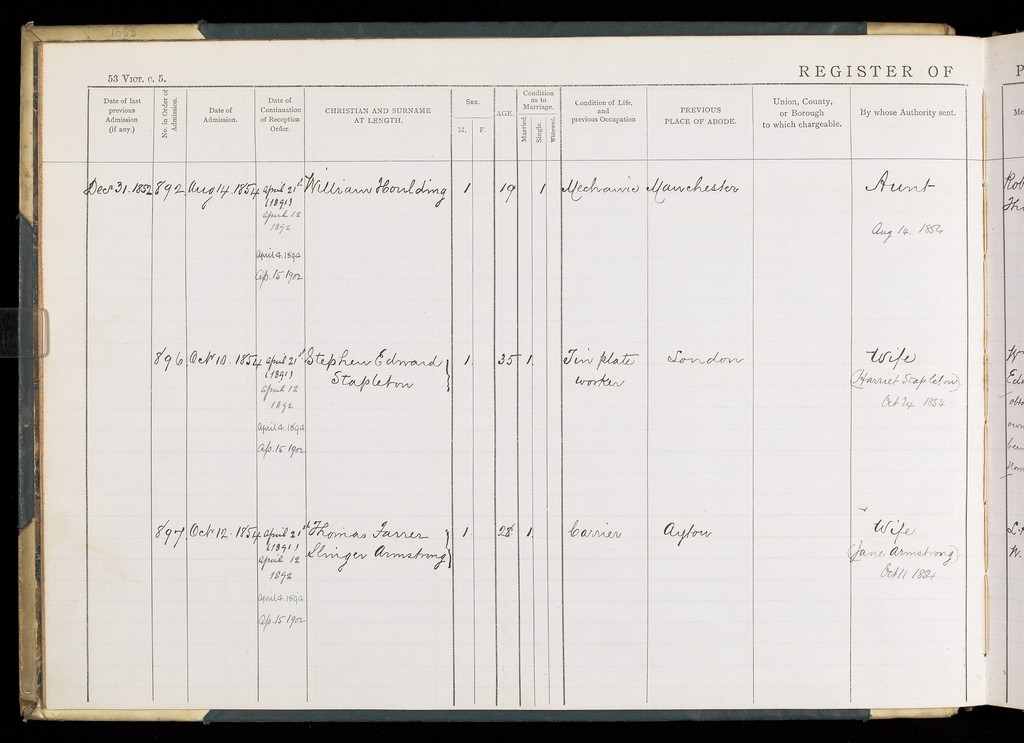 53 VICT. C. 5.
REGISTER OF
Date of last
previous
Admission
(if any.)
No. in Order of
Admission.
Date of
Admission.
Date of
Continuation
of Reception
Order.
CHRISTIAN AND SURNAME
AT LENGTH.
SEX.
M.
F.
AGE.
Condition
as to
Marriage.
Married.
Single.
Widowed.
Condition of Life,
and
previous Occupation
PREVIOUS
PLACE OF ABODE.
Union, County,
or Borough
to which chargeable.
By whose Authority sent.
Decr 31. 1852 892 Aug 14. 1854 April 21st William Houlding 1 19 1 Mechanic Manchester Aunt
(1891)
April 12
1892
Aug 14. 1854
April 4. 1894
Ap. 15 1902
896 Octr 10. 1854 April 21st Stephen Edward 1. 35 1. Tin plate London Wife
(1891) Stapleton worker (Harriet Stapleton)
April 12
1892
Oct 24 1854
April 4. 1894
Ap. 15 1902
897 Octr 12. 1854 April 21st Thomas Farrer 1. 28 1. Carrier Ayton Wife
(1891) Slinger Armstrong (Jane Armstrong)
April 12
1892
Oct 11 1854
April 4. 1894
Ap. 15 1902